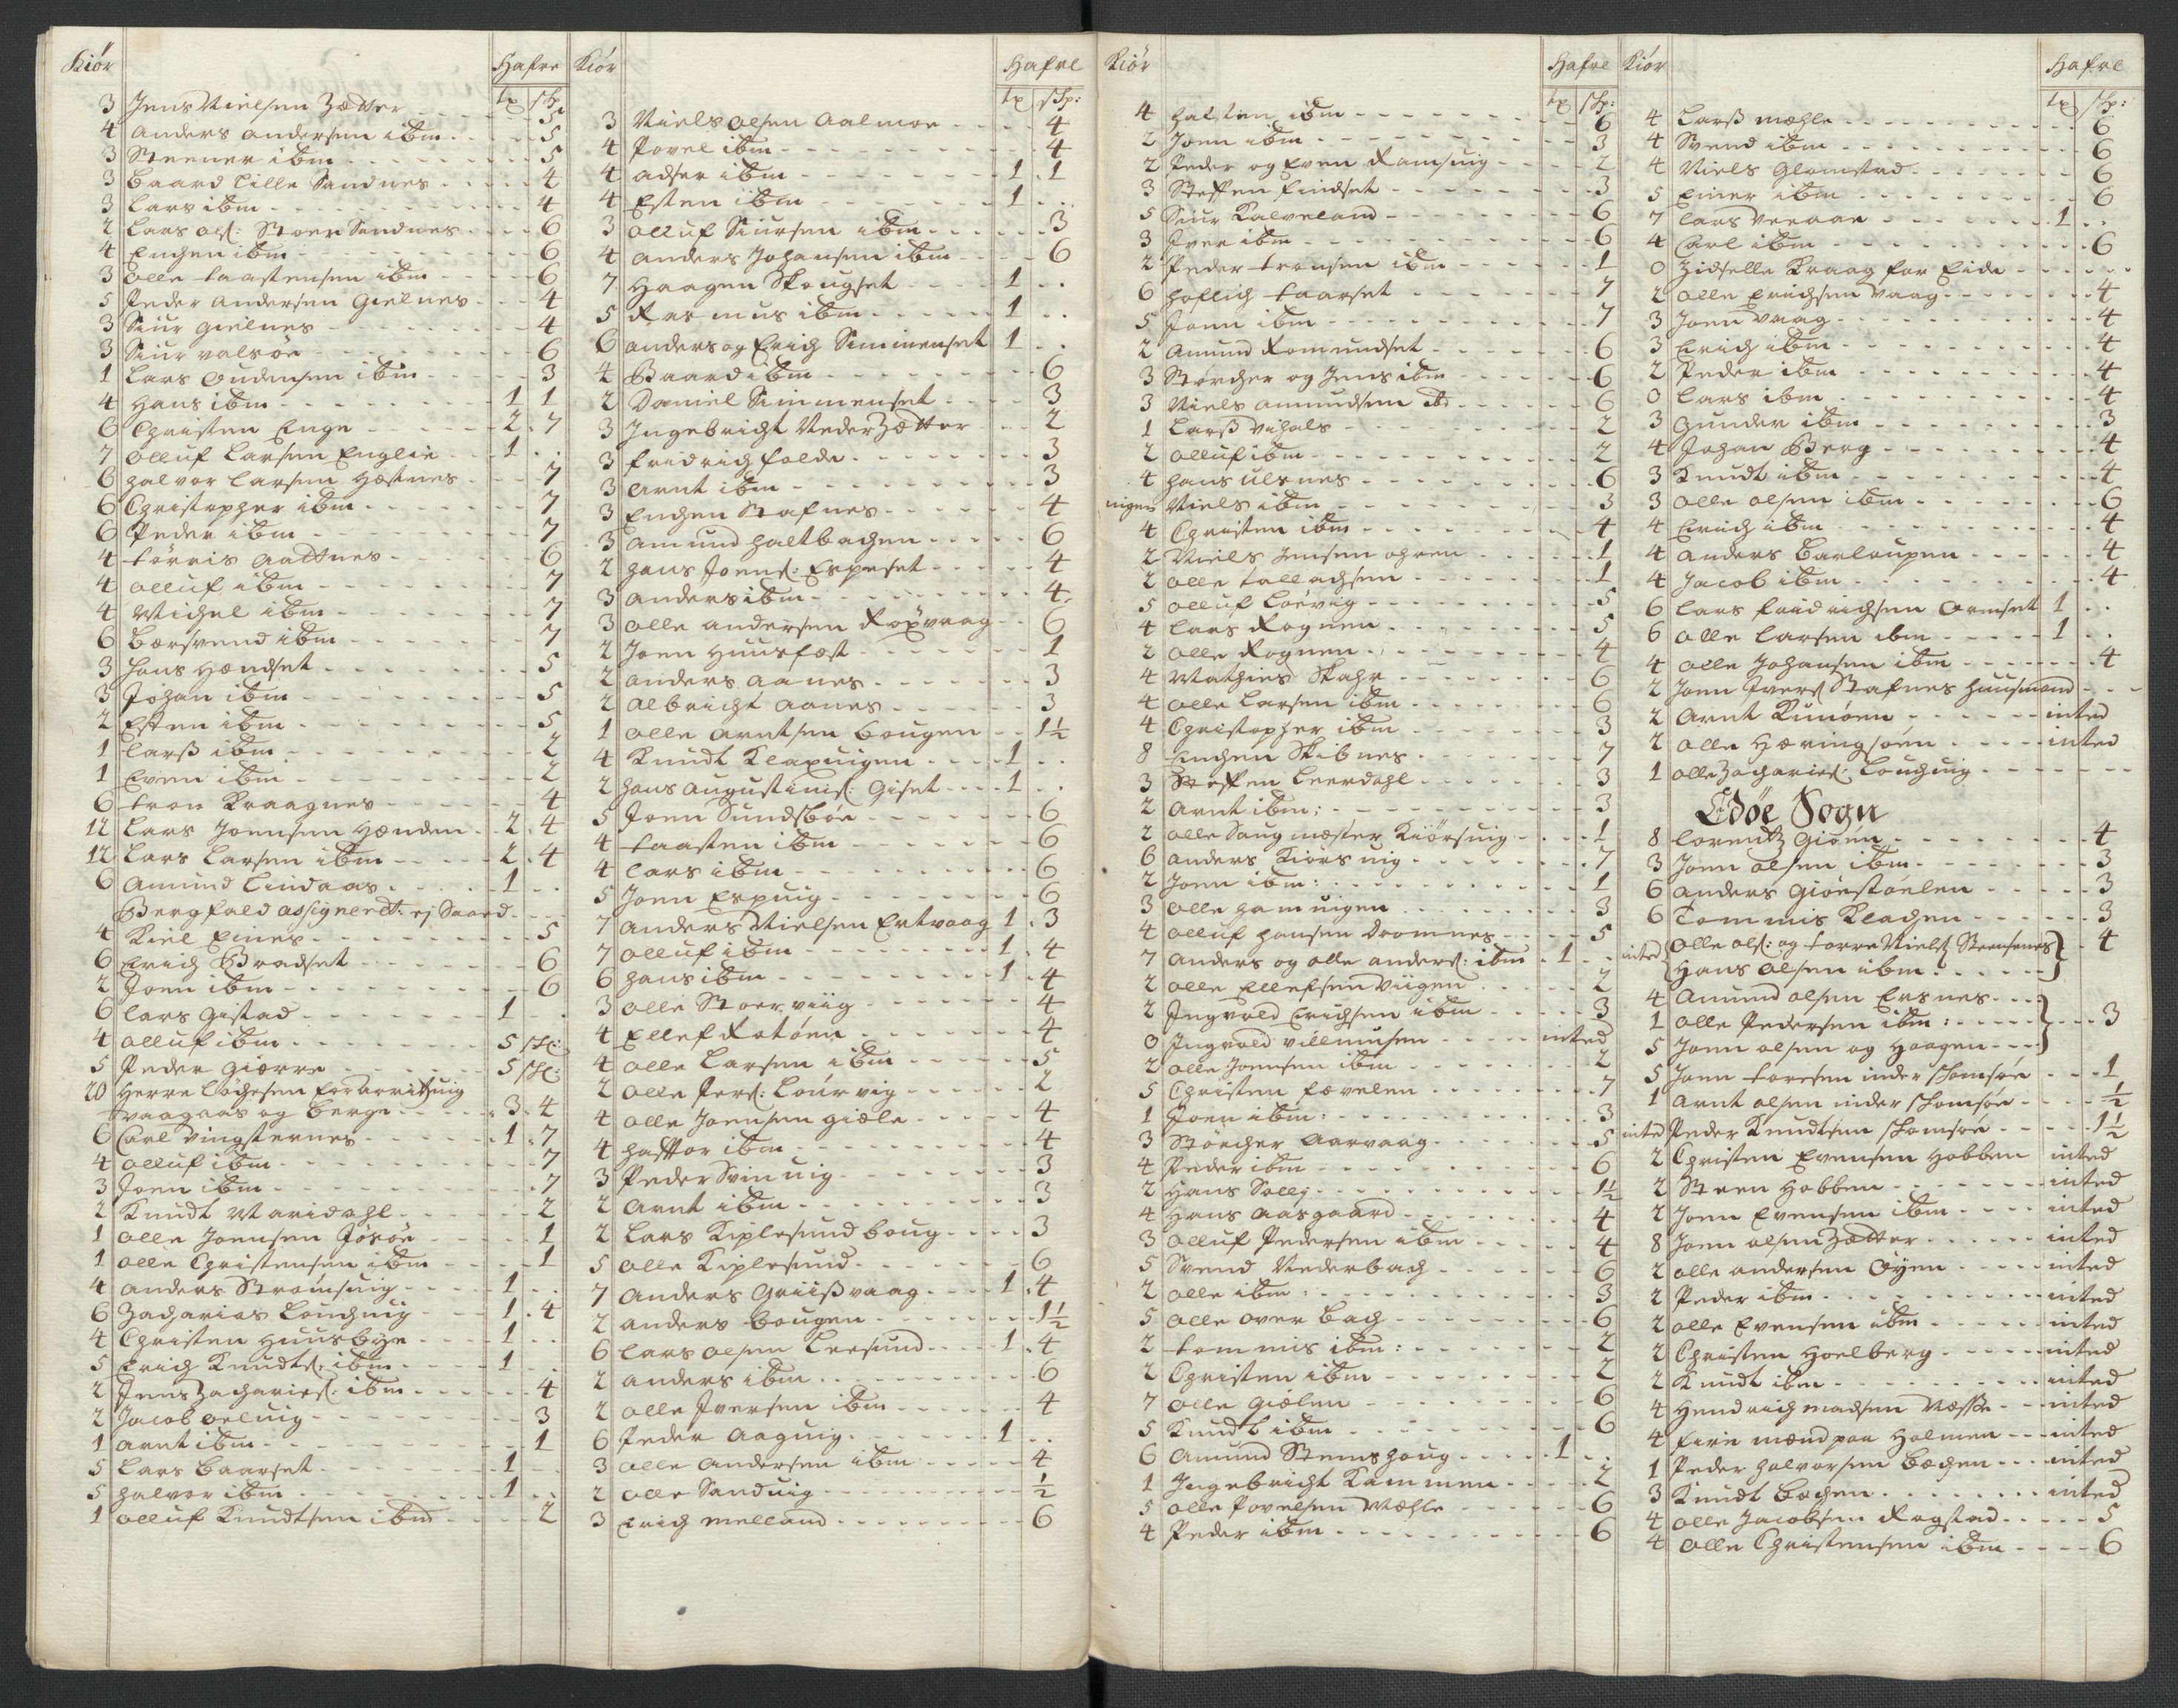 Kiör Hafre
tø skp
3 Jens Nielsen Zætter 5
4 anders andersen ibm 5
3 Steener ibm 5
3 baard lille Sandnes 4
3 lars ibm 4
2 lars ols: Stoer Sandnes 6
4 Enchen ibm 6
3 olle taastensen ibm 6
5 Peder andersen Gielnes 4
3 Siur gielnes 4
3 Siur valsöe 6
1 lars Oudensen ibm 3
4 Hans ibm 1 1
6 Christen Enge 2 7
7 olluf larsen Englie 1
6 halvor larsen Hæstnes 7
6 Christopher ibm 7
6 Peder ibm 7
4 törris Aattnes 6
4 olluf ibm 7
4 Michel ibm 7
6 bærsvend ibm 7
3 Hans Hendset 5
3 Johan ibm 5
2 Esten ibm 5
1 larß ibm 2
1 Even ibm 2
6 tron Kraagnes 4
12 lars Joensen Henden 2 4
12 lars larsen ibm 2 4
6 Amund lindaas 1
Bergfald assigneret: ej Saard
4 Kiel Eines 5
6 Erich Bradset 6
2 Joen ibm 6
6 lars gistad 1
4 olluf ibm 5 skl:
5 Peder giærre 5 skl:
20 Herre lochesen for arritzuig
vaagaas og berge 3 4
6 Carl vingsternes 1 7
4 olluf ibm 7
3 Joen ibm 7
2 Knudt Maridahl 2
1 olle Joensen Jösöe 1
1 olle Christensen ibm 1
4 anders Strömsuig 1
6 Zacharias louchuig 1 4
4 Christen Huusbye 1
5 Erich Knudts: ibm 1
2 Jens Zacharies: ibm 4
2 Jacob oeluig 3
1 arnt ibm 1
5 lars baarset 1
5 halvor ibm 1
1 olluf Knudtsen ibm 2
Kiör Hafre
tø skp:
3 Niels olsen Aalmoe 4
4 Povel ibm 4
4 adser ibm 1 1
4 Esten ibm 1
3 olluf Siursen ibm 3
4 anders Johansen ibm 6
7 Haagen Skougset 1
5 Rasmus ibm 1
6 anders og Erich Simmenset 1
4 Baard ibm 6
2 Daniel Simmenset 3
3 Ingebricht Neder Zætter 2
3 fridrich folde 3
3 arnt ibm 3
3 Enchen Stafnes 4
3 amund haltbachen 6
2 hans Joens: Espeset 4
3 anders ibm 4
3 olle andersen Roxvaag 6
2 Joen Huusfast 1
2 anders aanes 3
2 albricht aanes 3
1 olle arntsen bougen 1½
4 Knudt Klaxuigen 1
2 hans augustinus: Giset 1
5 Joen Sundsböe 6
4 taasten ibm 6
4 lars ibm 6
5 Joen Espuig 6
7 anders Nielsen Ertvaag 1 3
7 olluf ibm 1 4
6 hans ibm 1 4
3 olle Stoerviig 4
4 Ellef Rotöen 4
4 olle larsen ibm 5
2 olle Pers: lourvig 2
4 olle Joensen giæle 4
4 hastor ibm 4
3 Peder Svinuig 3
2 arnt ibm 3
2 lars Kiplesund boug 3
5 olle Kiplesund 6
7 anders griißvaag 1 4
2 anders bougen 1½
6 lars olsen Leesund 1 4
2 anders ibm 6
2 olle Iversen ibm 4
6 Peder Aaguig 1
3 olle andersen ibm 4
2 olle Sanduig ½
3 Erich melland 6
Kiör Hafre
tø skp:
4 halsten ibm 6
2 Joen ibm 3
2 Peder og Even Ramsuig 2
3 Steffen findset 3
5 Siur Kalveland 6
3 Iver ibm 6
2 Peder tronsen ibm 1
6 hoflich taarset 7
5 Joen ibm 7
2 amund Romundset 6
3 Störcher og Jens ibm 6
3 Niels amundsen ibd 6
1 larß vihals 2
2 olluf ibm 2
4 hans ulsnes 6
ingen Niels ibm 3
4 Christen ibm 4
2 Niels Jensen ogren 1
2 olle tallachsen 1
5 olluf loevig 5
4 lars Rognen 5
2 olle Rognen 4
4 Mathias Skahr 6
4 olle larsen ibm 6
4 Christopher ibm 3
8 Enchen Skibnes 7
3 Steffen leerdahl 3
2 arnt ibm: 3
2 olle Saugmæster Kiörsuig 1
6 anders Kiörsuig 7
2 Joen ibm: 1
3 olle hamuigen 3
4 olluf hansen Dromnes 5
7 anders og olle anders: ibm 1
2 olle Ellefsen viigen 2
2 Ingvold Erichsen ibm 3
0 Ingvold villumsen inted
2 olle Joensen ibm 2
5 Christen fævelen 7
1 Joen ibm: 3
3 Storcher aarvaag 5
4 Peder ibm 6
2 Hans Sollj 1½
4 Hans aasgaard 4
3 olluf Pedersen ibm 4
5 Svend Nederbach 6
2 olle ibm: 3
5 olle over bach 6
2 tommis ibm: 2
2 Christen ibm 2
7 olle gielen 6
5 Knudt ibm 6
6 Amund Stemshoug 1
1 Ingebricht Kammen 2
5 olle Povelsen Mæhle 6
4 Peder ibm 6
Kiör Hafre
tø skp:
4 larß mæhle 6
4 Svend ibm 6
4 Niels Glomstad 6
5 Einer ibm 6
7 lars veraae 1
4 Carl ibm 6
0 Zidselle Kraag for Eide
2 olle Erichsen vaag 4
3 Joen vaag 4
3 Erich ibm 4
2 Peder ibm 4
0 lars ibm 4
3 gunder ibm 3
4 Johan Berg 4
3 Knudt ibm 4
3 olle olsen ibm 6
4 Erich ibm 4
4 anders barloupen 4
4 Jacob ibm 4
6 lars fridrichsen ormset 1
6 olle larsen ibm 1
4 olle Johansen ibm 4
2 Joen Ivers Stafnes huusmand
2 Arnt Kunöen inted
2 olle Hæringsöen inted
1 olle Zacharies: louchuig
Edöe Sogn
8 lorentz giöen 4
3 Joen olsen ibm 3
6 anders giöestöelen 3
6 Tommis Klachen 3
inted olle ols: og torre Niels Steensnes 4
Hans olsen ibm
4 Amund olsen Ersnes
1 olle Pedersen ibm: 3
5 Joen olsen og Haagen
5 Joen toresen inder skomsöe 1
1 arnt olsen inder skomsöe ½
inted Peder Knudtsen skomsöe 1½
2 Christen Evensen Hobben inted
2 Steen Hobben inted
2 Joen Evensen ibm inted
8 Joen olsen Zætter inted
2 olle andersen Öyen inted
2 Peder ibm inted
2 olle Evensen ibm inted
2 Christen Hoelberg inted
2 Knudt ibm inted
4 Hendrich madsen Næsse inted
4 fire mænd paa Holmen inted
1 Peder halvorsen bachen inted
3 Knudt bachen inted
4 olle Jacobsen Rogstad 5
4 olle Christensen ibm 6